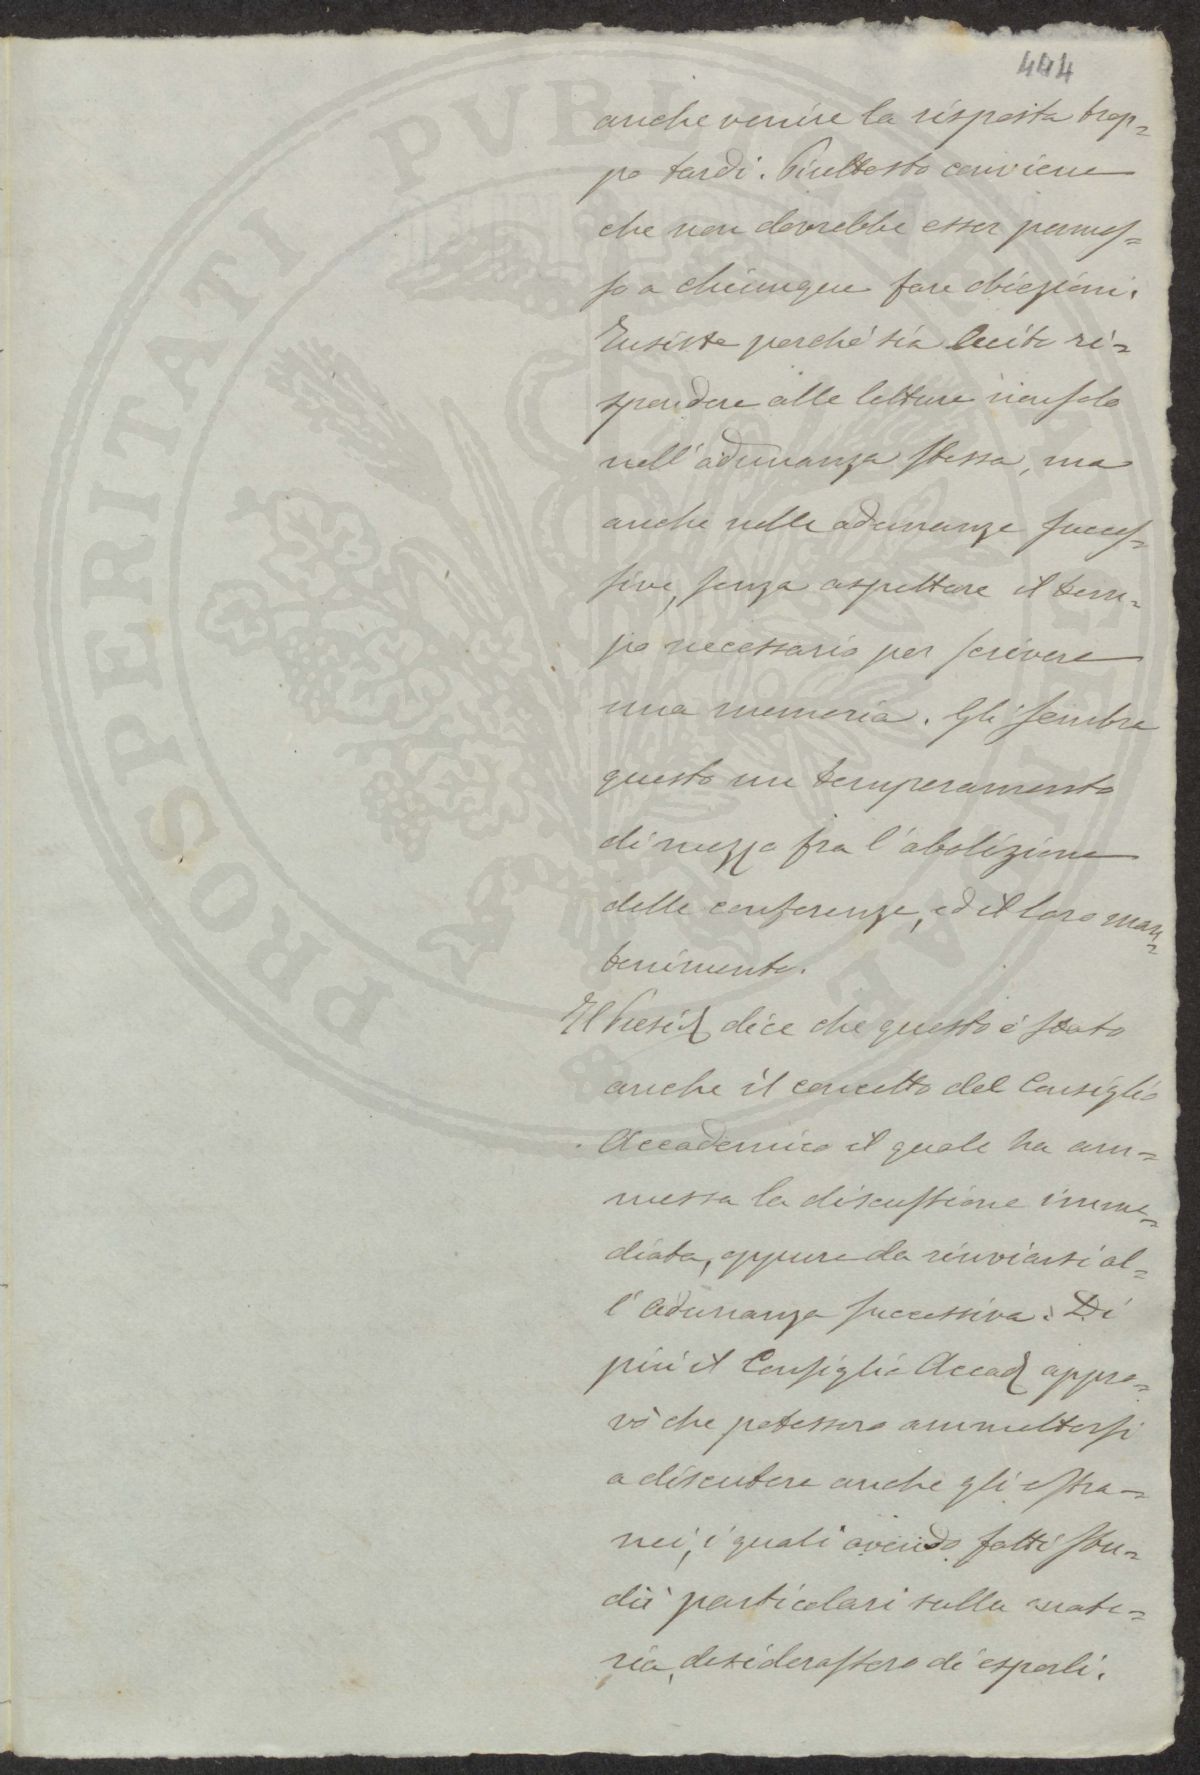 444
anche venire la risposta trop=
po tardi. Piuttosto conviene
che non dovrebbe esser permes=
so a chiunque fare obiezioni.
Insiste perché sia lecito ri=
spondere alle letture non solo
nell'adunanza stessa, ma
anche nelle adunanze succes=
sive, senza aspettare il tem=
po necessario per scrivere
una memoria. Gli sembra
questo un temperamento
di mezzo fra l'abolizione
delle conferenze, ed il loro man=
tenimento.
Il Presid. dice che questo è stato
anche il concetto del Consiglio
Accademico il quale ha am=
messa la discussione imme=
diata, oppure da rinviarsi al=
l'adunanza successiva. Di
più il Consiglio Accad. appro=
vò che potessero ammettersi
a discutere anche gli estra=
nei, i quali avendo fatti stu=
dii particolari sulla mate=
ria, desiderassero di esporli.
PROSPERITATI PVBLICAE AVGENDAE